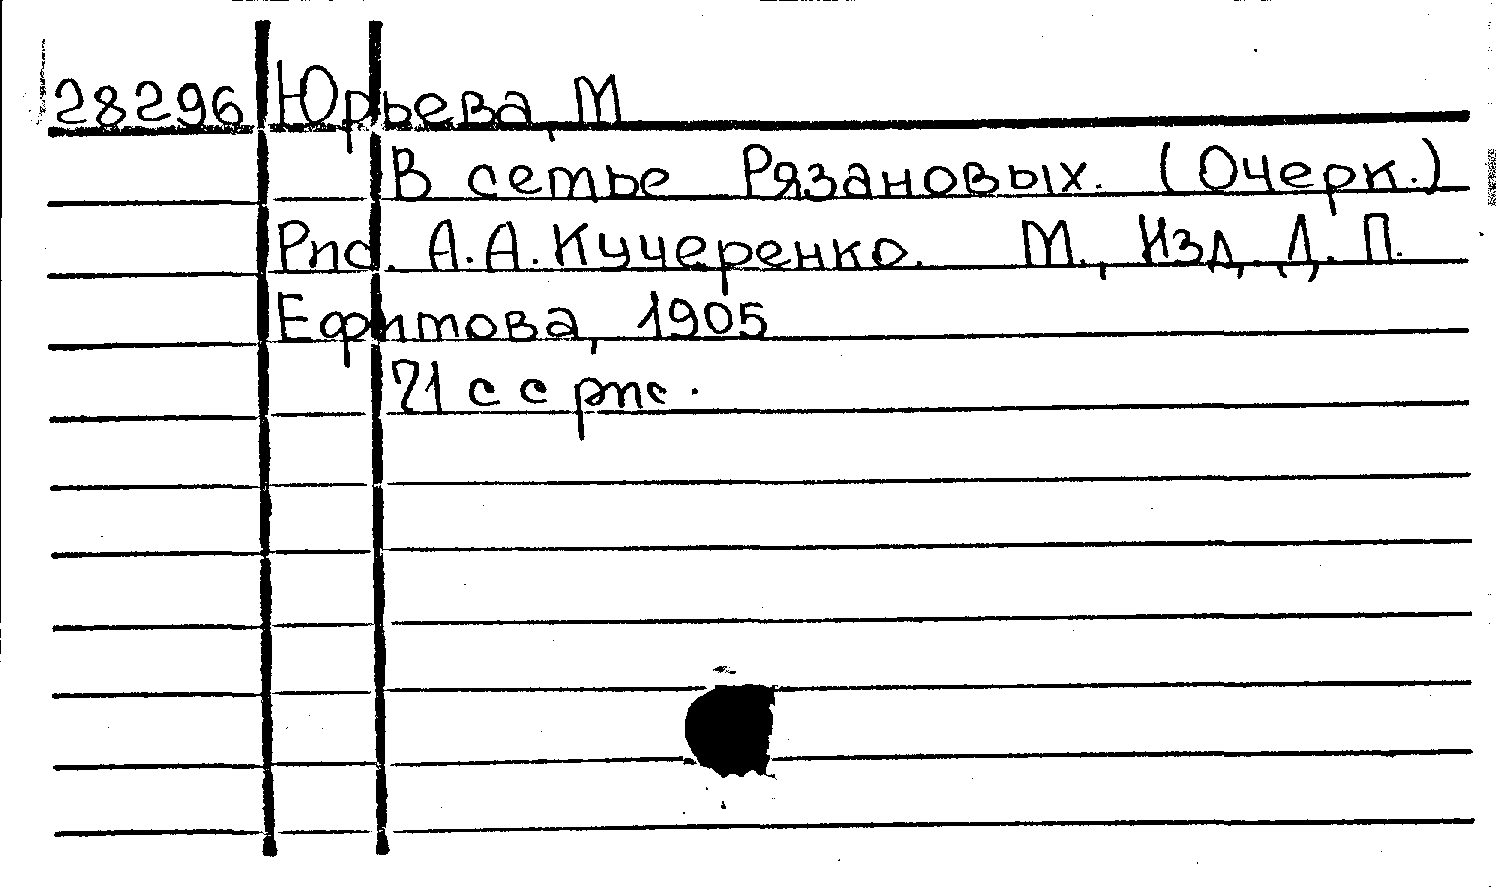 28296 Юрьева, М
В семье Рязановых. (Очерк.)
Рис. А.А.Кучеренко. М., Изд. Д. П.
Ефимова, 1905
21 с с рис.